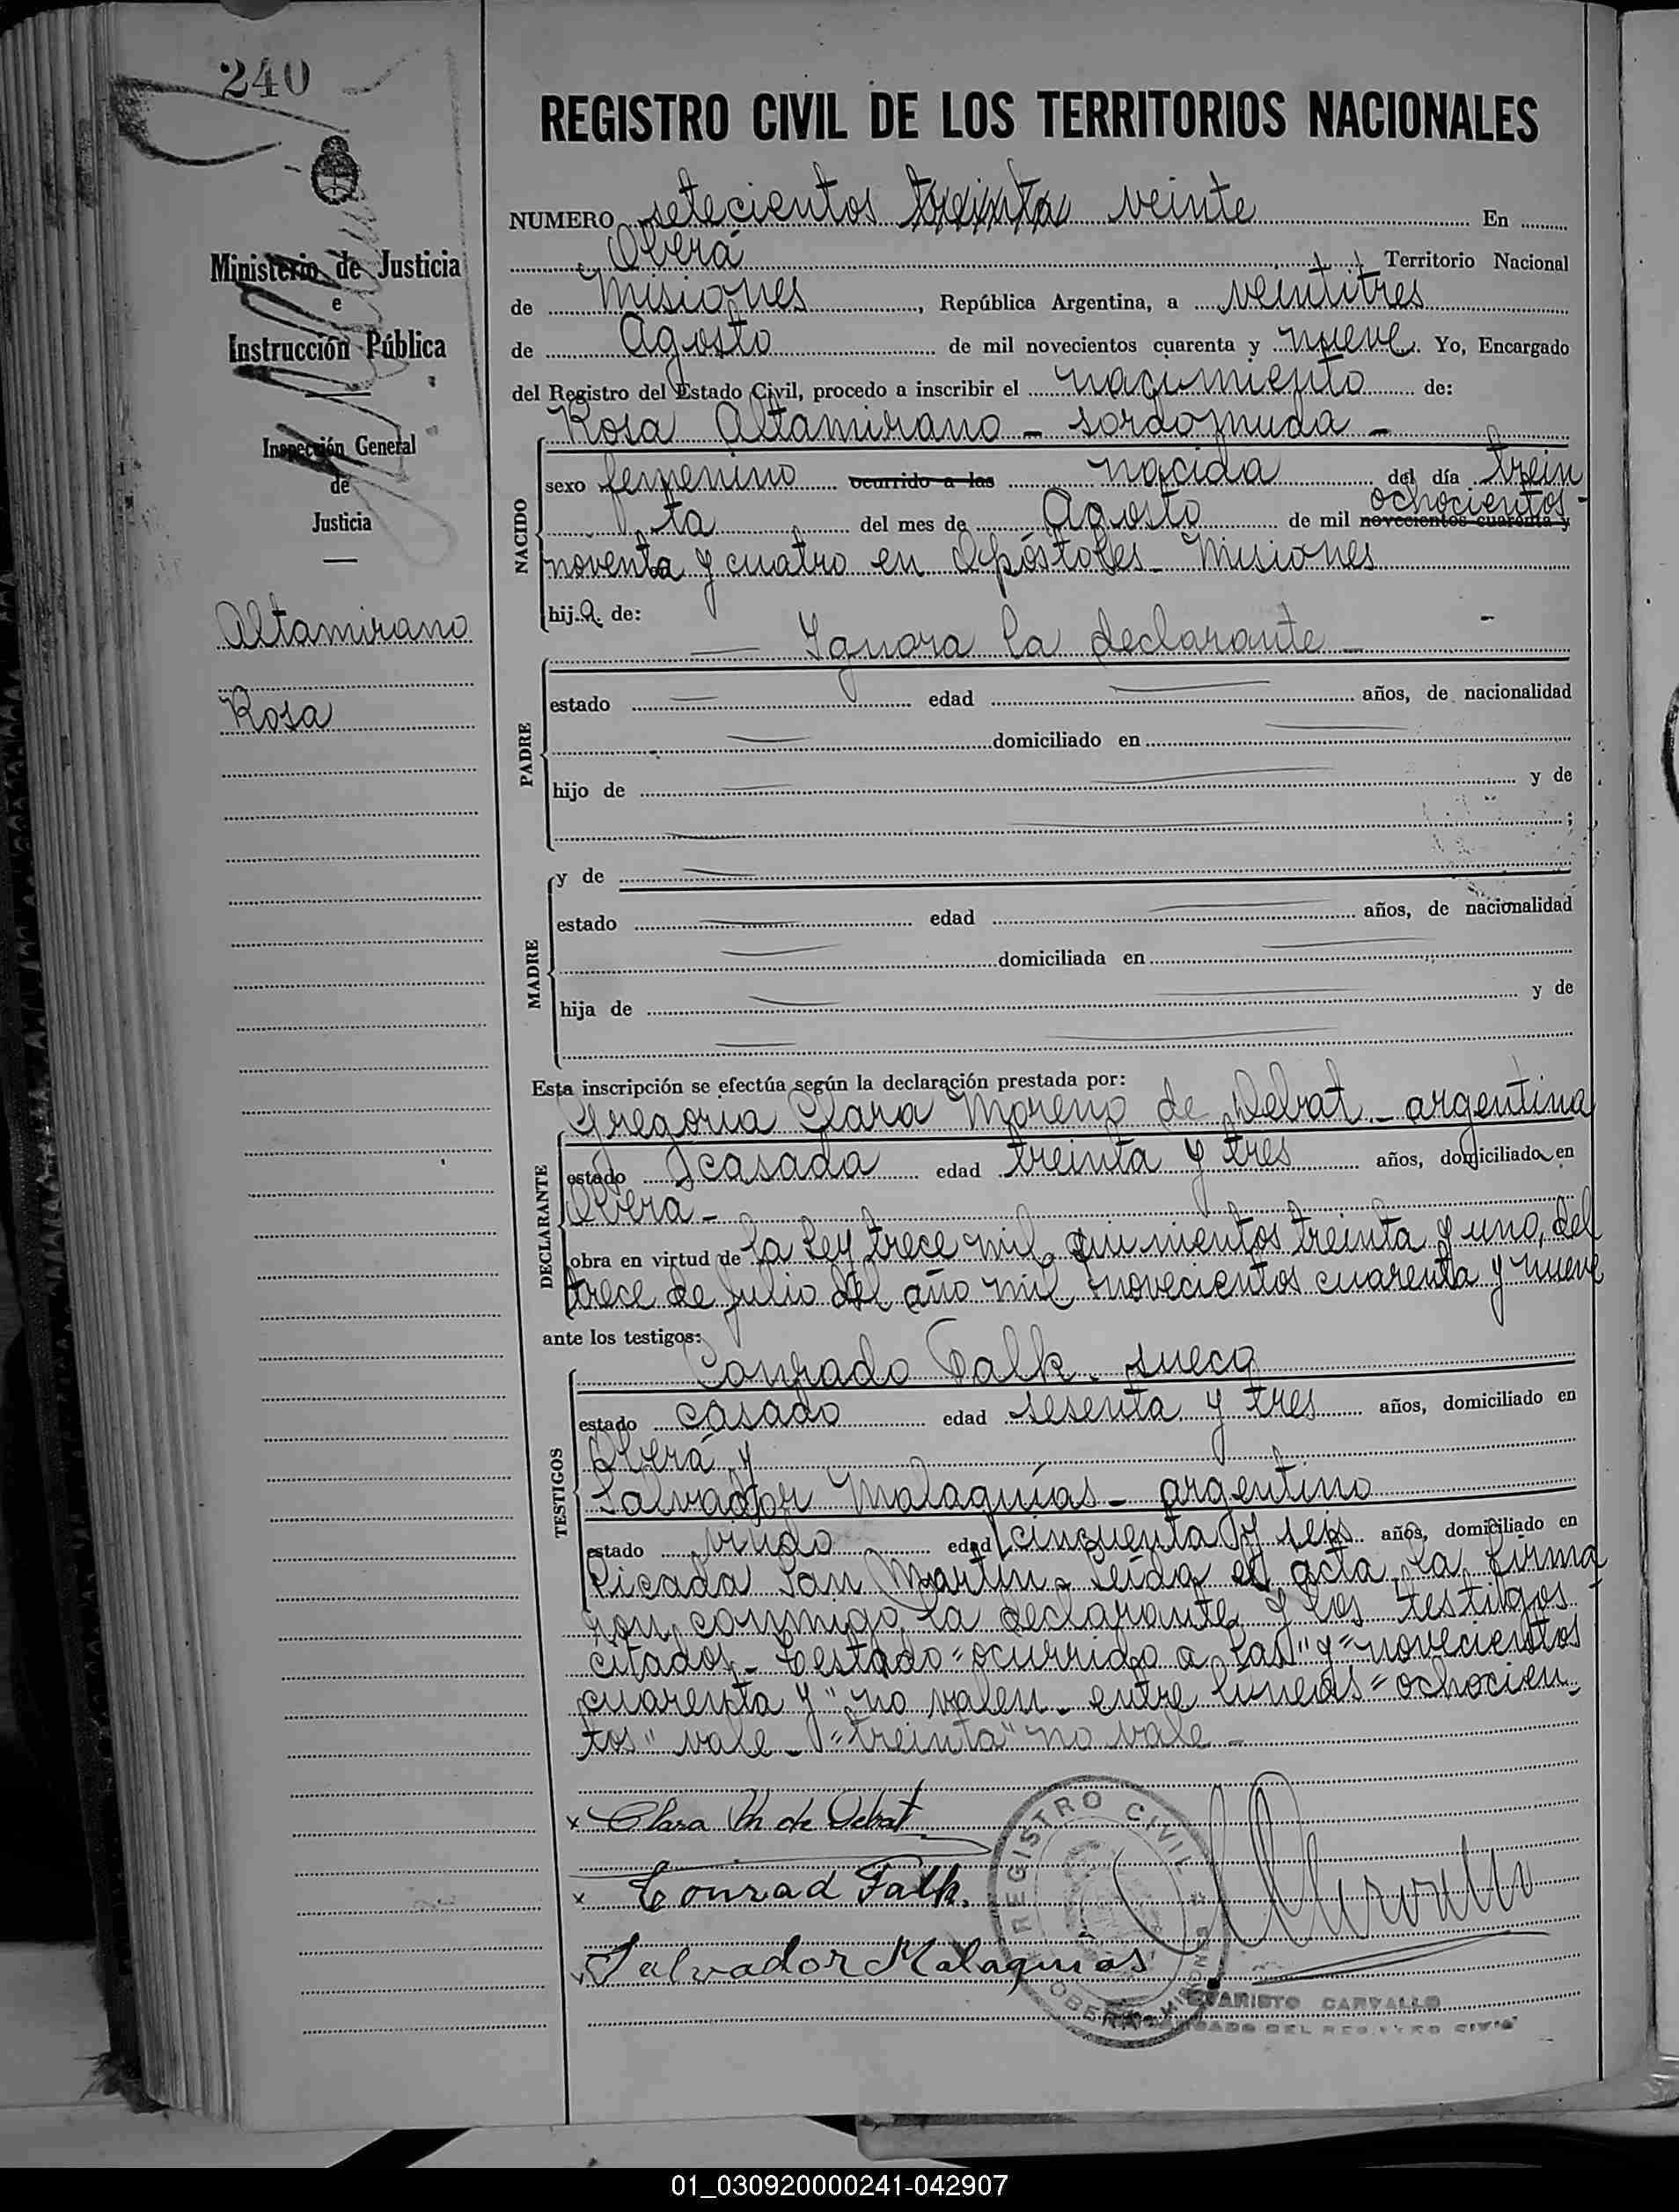 240
REGISTRO CIVIL DE LOS TERRITORIOS NACIONALES
NUMERO setecientos treinta veinte En
Oberá Territorio Nacional
de Misiones, República Argentina, a veintitres
de Agosto de mil novecientos cuarenta y nueve. Yo, Encargado
del Registro del Estado Civil, procedo a inscribir el nacimiento de:
Ministerio de Justicia
e
Instrucción Pública
Inspección General
de
Justicia
Altamirano
Rosa
NACIDO
Rosa Altamirano - sordomuda -
sexo femenino ocurrido a las nacida del día trein
ochocientos -
ta del mes de Agosto de mil novecientos cuarenta y
noventa y cuatro en Apóstoles - Misiones
hij a de:
PADRE
— Ignora la declarante -
estado edad años, de nacionalidad
domiciliado en
hijo de y de
;
MADRE
y de
estado edad años, de nacionalidad
domiciliada en
hija de y de
Esta inscripción se efectúa según la declaración prestada por:
DECLARANTE
Gregoria Clara Moreno de Debat - argentina
estado casada edad treinta y tres años, domiciliado en
Oberá -
obra en virtud de la Ley trece mil quinientos treinta y uno, del
trece de Julio del año mil novecientos cuarenta y nueve
ante los testigos:
TESTIGOS
Conrado Falk - sueco
estado casado edad sesenta y tres años, domiciliado en
Oberá y
Salvador Malaquías - argentino
estado viudo edad cincuenta y seis años, domiciliado en
Picada San Martín - Leída el acta, la firma
ron conmigo, la declarante y los testigos
citados - Testado "ocurrido a las" y "novecientos
cuarenta y" no valen - entre lineas "ochocien-
tos" vale - "treinta" no vale -
x Clara M de Debat
x Conrad Falk.
x Salvador Malaquias
REGISTRO CIVIL
OBERA MISIONES
EVARISTO CARVALLO
ENCARGADO DEL REGISTRO CIVIL
01_030920000241-042907